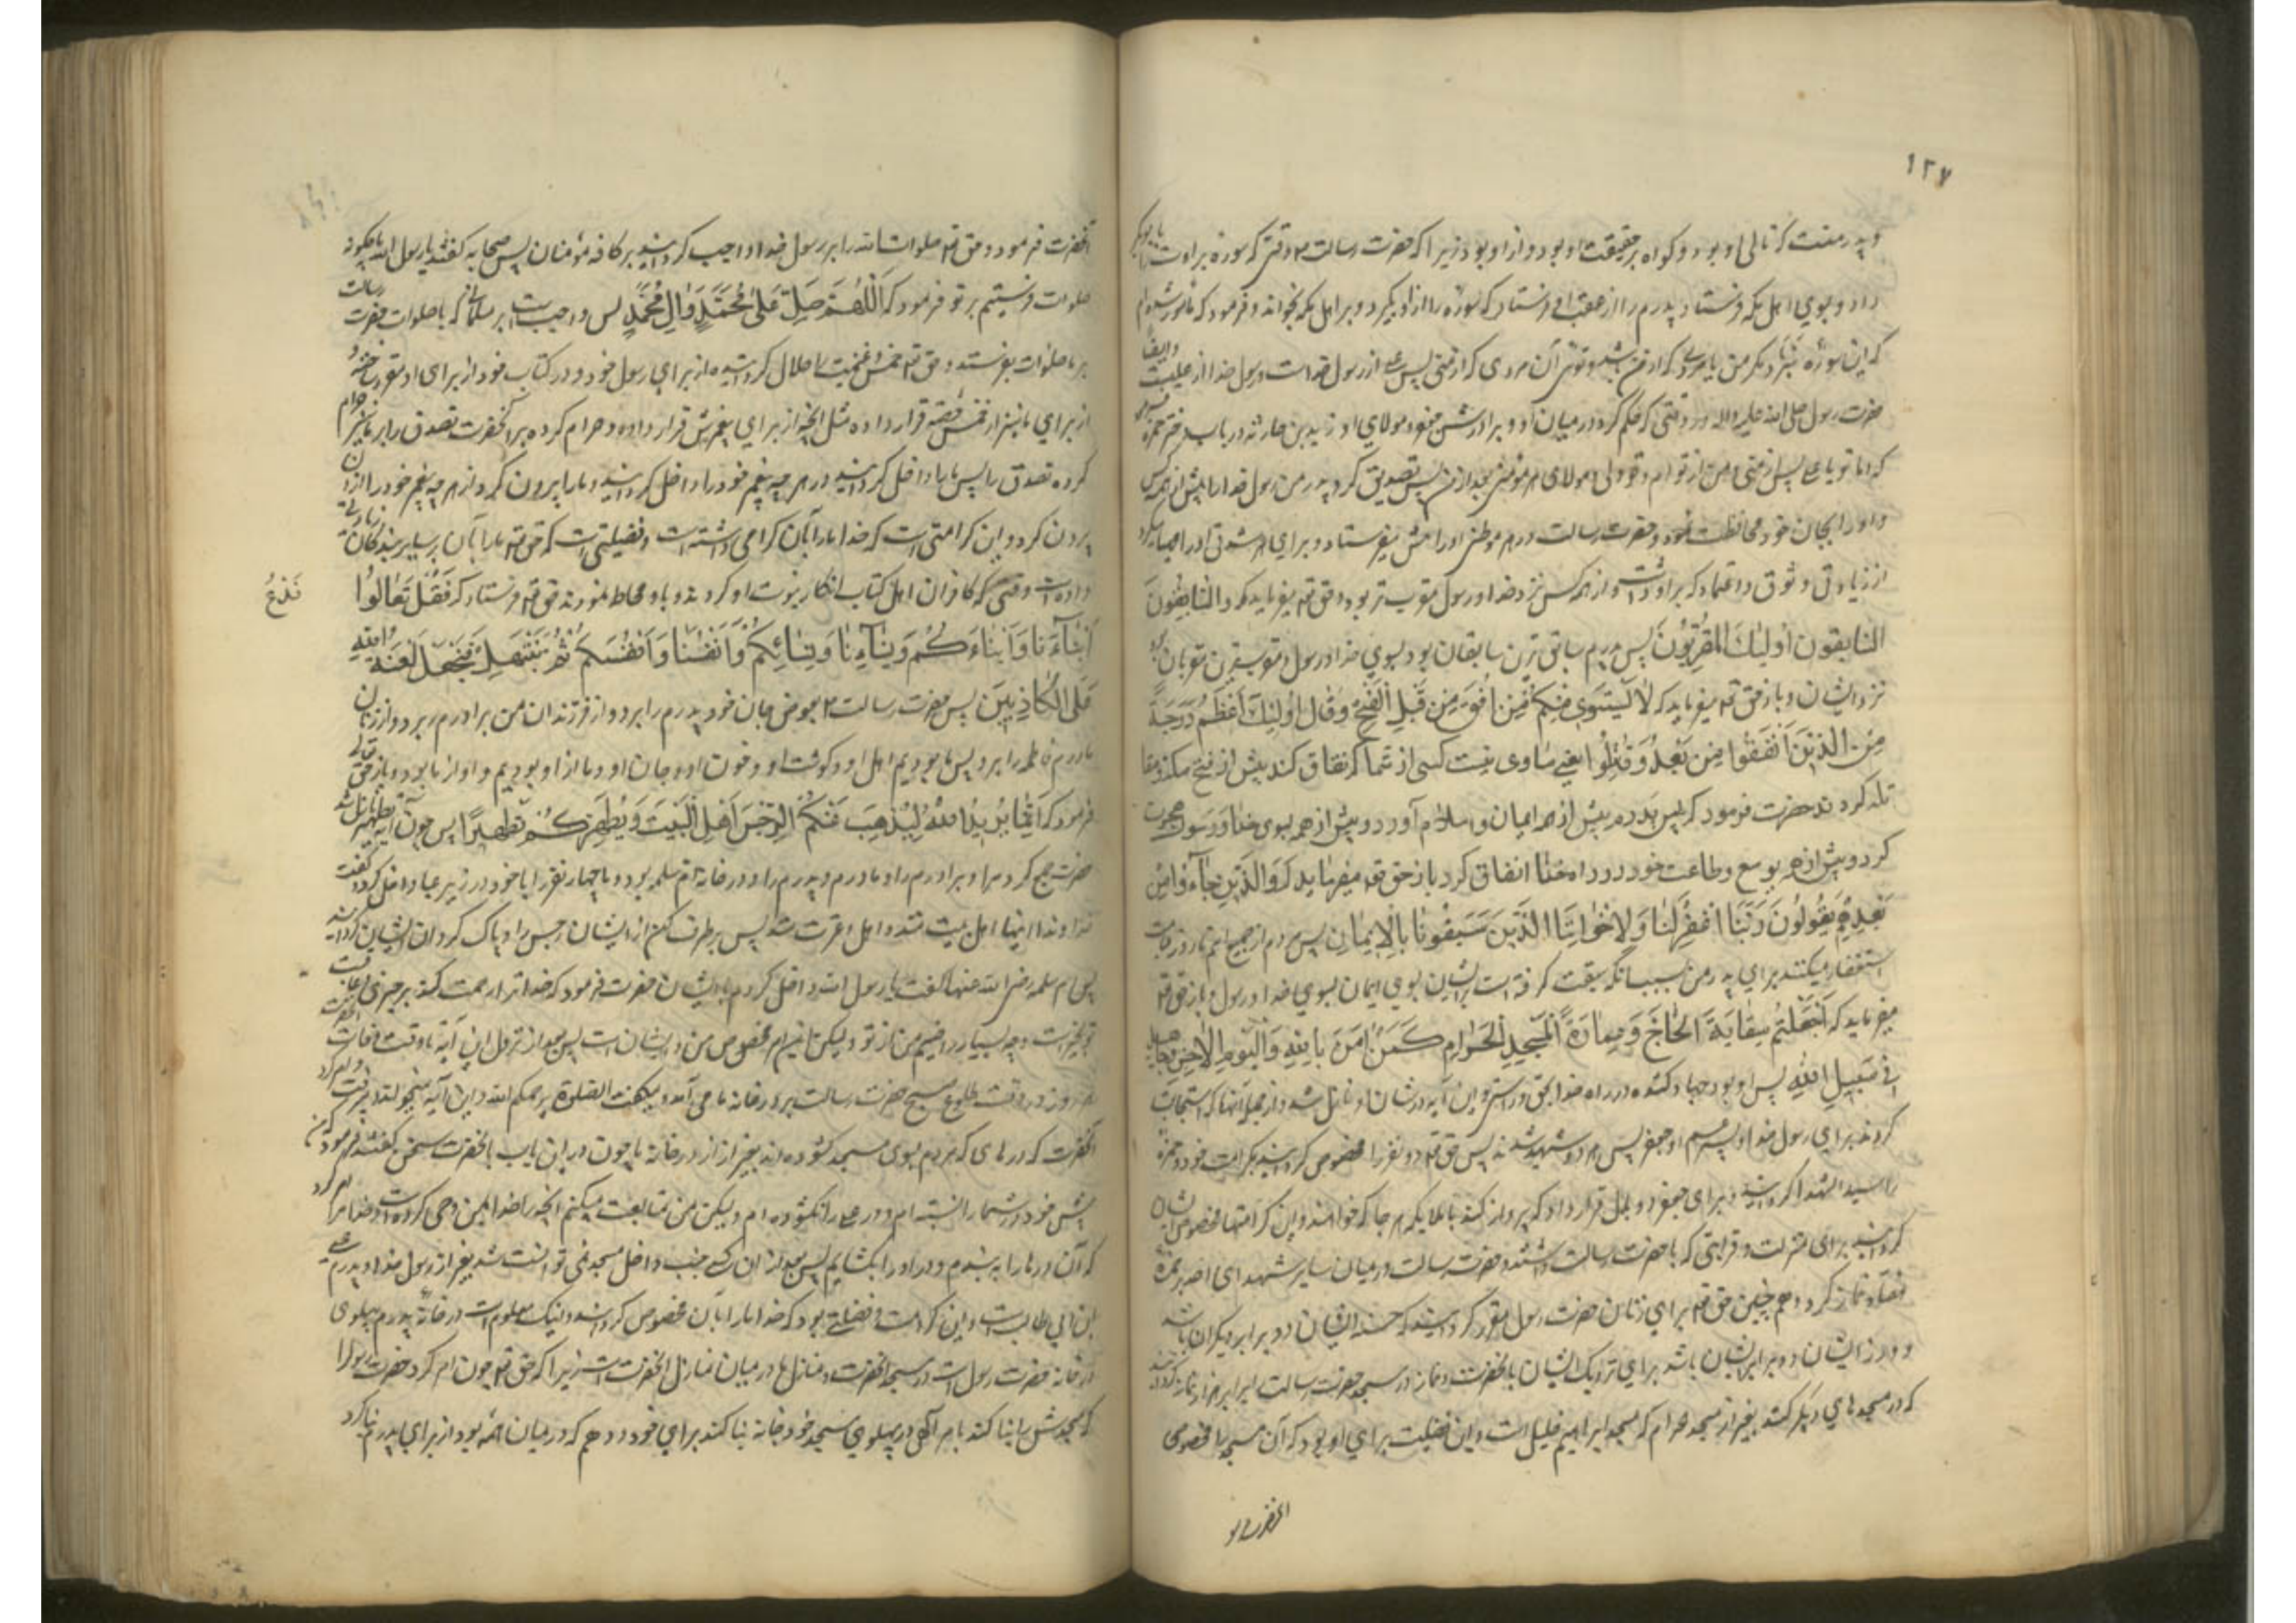 ۱۲۷
و پدر منست که تالی او بود و گواه بر حقیقت او بود و از او بود زیرا که حضرت رسالت ص وقتی که سوره براءت را بابوبکر
داد و بسوی اهل مکه فرستاد پدرم را از عقب او فرستاد که سوره را از او بگیرد و بر اهل مکه بخواند و فرمود که مأمور شده‌ام
که این سوره را نبرد مگر من یا مردی که از من باشد و توئی آن مردی که از منی پس علی از رسول خداست و رسول خدا از علیست و ایضا
حضرت رسول صلی الله علیه و آله در وقتی که حکم کرد در میان او و برادرش جعفر و مولای او زید بن حارثه در باب دختر حمزه فرمود
که اما تو یا علی پس از منی و من از توام و تو ولی و مولای هر مؤمنی بعد از من پس تصدیق کرد پدر من رسول خدا را پیش از همه کس
و او را بجان خود محافظت نمود و حضرت رسالت در هر موطن او را پیش میفرستاد و برای هر شدتی او را مهیا میکرد
از زیادتی وثوق و اعتماد که بر او داشت و از همه کس نزد خدا و رسول مقرب‌تر بود و حق تعه میفرماید که و السابقون
السابقون اولئک المقربون پس پدرم سابق‌ترین سابقان بود بسوی خدا و رسول و مقرب‌ترین مقربان بود
نزد ایشان و باز حق تعه میفرماید که لا یستوی منکم من انفق من قبل الفتح و قاتل اولئک اعظم درجة
من الذین انفقوا من بعد و قاتلوا یعنی مساوی نیست کسی از شما که انفاق کند پیش از فتح مکه و مقا
تله کرد تا حضرت فرمود که پس پدرم پیش از همه ایمان و اسلام آورد و پیش از همه بسوی خدا و رسول هجرت
کرد و پیش از همه بوسع و طاعت خود در راه خدا انفاق کرد باز حق تعه میفرماید که و الذین جاءوا من
بعدهم یقولون ربنا اغفر لنا و لاخواننا الذین سبقونا بالایمان پس مردم از جمیع امم تا روز قیامت
استغفار میکنند برای پدر من بسبب آنکه سبقت گرفته است بر ایشان بسوی ایمان بسوی خدا و رسول و باز حق تعه
میفرماید که اجعلتم سقایة الحاج و عمارة المسجد الحرام کمن امن بالله و الیوم الاخر و جاهد
فی سبیل الله پس او بود جهاد کننده در راه خدا بحق و راستی و این آیه در شان او نازل شد و از جمله آنها که استجابت
کردند برای رسول خدا و پسر عم او جعفر پس هر دو شهید شدند پس حق تعه دو نفر را مخصوص گردانید بکرامت خود و حمزه
را سید الشهدا گردانید و برای جعفر دو بال قرار داد که پرواز کند با ملائکه هر جا که خواهند و این کرامتها مخصوص ایشان
گردانید برای منزلت و قرابتی که با حضرت رسالت داشتند و حضرت رسالت در میان سایر شهدای احد بر حمزه
هفتاد نماز کرد و هم چنین حق تعه برای زنان حضرت رسول مقرر گردانید که حسنه ایشان دو برابر دیگران باشد
و وزر ایشان دو برابر ایشان باشد برای نزدیکی ایشان بآنحضرت و نماز در مسجد حضرت رسالت را برابر هزار نماز گردانید
که در مسجدهای دیگر کنند بغیر از مسجد حرام که مسجد ابراهیم خلیل است و این فضیلت برای او بود که آن مسجد را مخصوص
آنحضرت بو
آنحضرت فرمود و حق تعه صلوات الله را بر رسول خدا واجب گردانید بر کافه مؤمنان پس صحابه گفتند یا رسول الله ما چگونه
صلوات فرستیم بر تو فرمود که اللهم صل علی محمد و ال محمد پس واجب است بر هر مسلمانی که با صلوات حضرت رسالت
بر ما صلوات بفرستد و حق تعه خمس غنیمت را حلال گردانیده از برای رسول خود و در کتاب خود از برای او مقرر ساخته و
از برای ما نیز از خمس حصه قرار داده مثل آنچه از برای پیغمبرش قرار داده و حرام کرده بر آنحضرت تصدق را و بر ما نیز حرام
کرده تصدق را پس ما را داخل گردانید در هر چه پیغمبر خود را داخل گردانید و ما را بیرون کرد از هر چه پیغمبر خود را از آن
بیرون کرد و این کرامتی است که خدا ما را بآن گرامی داشته است و فضیلتی است که حق تعه ما را بآن بر سایر بندگان زیادتی
داده است وقتی که کافران اهل کتاب انکار نبوت او کردند و با او محاجه نمودند حق تعه فرستاد که فقل تعالوا
ندع
ابناءنا و ابناءکم و نساءنا و نسائکم و انفسنا و انفسکم ثم نبتهل فنجعل لعنة الله
علی الکاذبین پس حضرت رسالت ص بعوض جان خود پدرم را برد و از فرزندان من و برادرم را برد و از زنان
مادرم فاطمه را برد پس ما بودیم اهل او و گوشت او و خون او و جان او و ما از او بودیم و او از ما بود و باز حق تعالی
فرمود که انما یرید الله لیذهب عنکم الرجس اهل البیت و یطهرکم تطهیرا پس چون آیه تطهیر نازل شد
حضرت جمع کرد مرا و برادرم را و مادرم و پدرم را و در خانه ام سلمه بود و ما چهار نفر را با خود در زیر عبا داخل کرد و گفت
خداوندا اینها اهل بیت منند و اهل عترت منند پس برطرف کن از ایشان رجس را و پاک گردان ایشان را
پس ام سلمه رضی الله عنها گفت یا رسول الله داخل کردم با ایشان حضرت فرمود که خدا ترا رحمت کند بر خیری و عاقبت
تو بخیر است و چه بسیار راضیم من از تو و لیکن این امر مخصوص من و ایشان است پس بعد از نزول این آیه تا وقت وفات آنحضرت
هر روز در وقت طلوع صبح حضرت رسالت بر در خانه ما می آمد و میگفت الصلوة یرحمکم الله و این آیه میخواند
آنحضرت که درهای که مردم بسوی مسجد گشوده‌اند بغیر از در خانه ما چون در این باب بآنحضرت سخن گفتند فرمود که من
پیش خود در شما را نبسته‌ام و در علی را نگشوده‌ام و لیکن من متابعت میکنم آنچه را خدا بمن وحی کرده است و خدا امر کرد
که آن درها را ببندم و در او را بگشایم پس بعد از آن کسی جنب داخل مسجد نمی توانست شد بغیر از رسول خدا و پدرم علی
ابن ابی طالب است و این کرامت و فضیلتی بود که خدا ما را بآن مخصوص گردانید و اینک معلوم است در خانه پدرم پهلوی
در خانه حضرت رسول است در مسجد آنحضرت و منازل ما در میان منازل آنحضرت است زیرا که حق تعه چون امر کرد حضرت رسول را
که مسجدش را بنا کند بامر الهی در پهلوی مسجد خود خانه بنا کند برای خود و دهم که در میان همه بود از برای پدرم بنا کرد